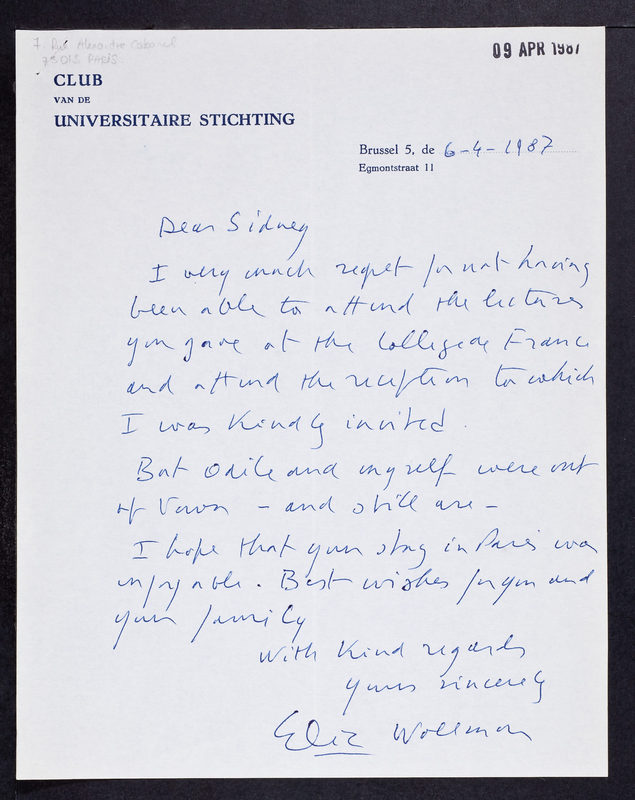 7. Rue Alexandre Cabanel
75015 PARIS
09 APR 1987
CLUB
VAN DE
UNIVERSITAIRE STICHTING
Brussel 5, de 6-4-1987
Egmontstraat 11
Dear Sidney
I very much regret for not having
been able to attend the lectures
you gave at the College de France
and attend the reception to which
I was kindly invited.
But Odile and myself were out
of town - and still are -
I hope that your stay in Paris was
enjoyable. Best wishes for you and
your family
With kind regards
yours sincerely
Elie Wollman